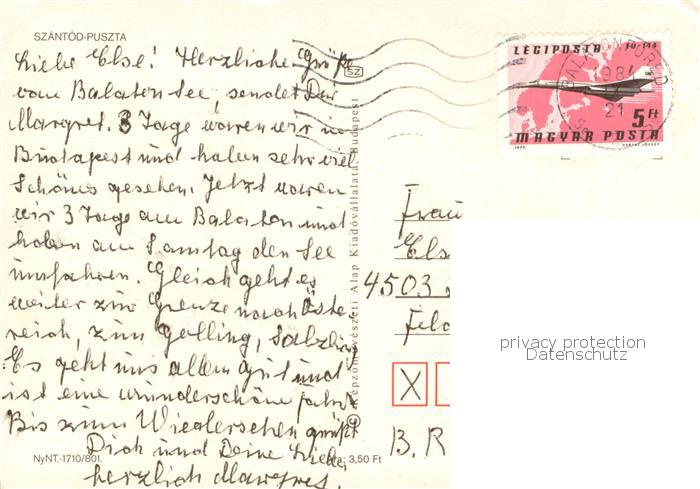 SZÁNTÓD-PUSZTA
Liebe Else! Herzliche Grüße
vom Balaton See, sendet Dir
Margret. 3 Tage waren wir in
Budapest und haben sehr viel
Schönes gesehen. Jetzt waren
wir 3 Tage am Balaton und
haben am Samstag den See
umfahren. Gleich geht es
weiter zur Grenze nach Öste
reich, zum Golling, Salzburg
Es geht uns allen gut und
ist eine wunderschöne Fahrt
Bis zum Wiedersehen grüßt
Dich und Deine Liebe,
herzlich Margret.
NyNT.-1710/801.
Ára: 3,50 Ft
SZ
Képzőművészeti Alap Kiadóvállalata, Budapest
LÉGIPOSTA TU-144
5 Ft
MAGYAR POSTA
1977.
1984
21
Frau
Els
4503
X
B.R
privacy protection
Datenschutz